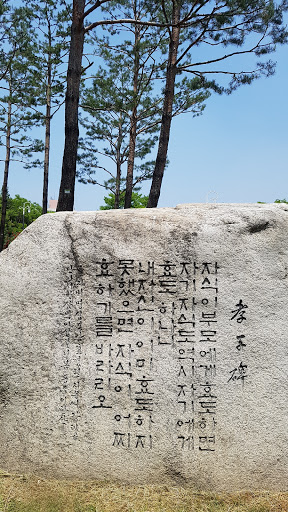 孝子碑
자식이 부모에게 효도하면
자기 자식도 역시 자기에게
효도하나니
내 자신이 이미 효도하지
못했으면 자식이 어찌
효하기를 바라리오